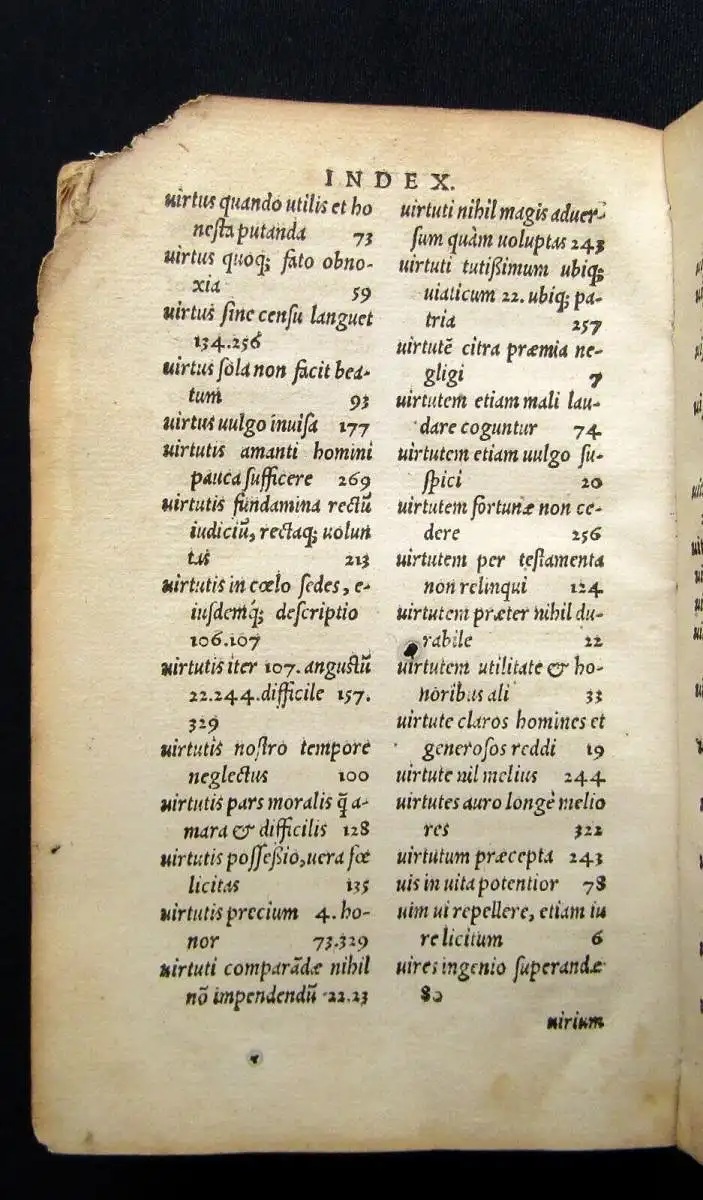 INDEX.
uirtus quando utilis et ho
nesta putanda 73
uirtus quoq; fato obno-
xia 59
uirtus sine censu languet
134.256
uirtus sola non facit bea-
tum 93
uirtus uulgo inuisa 177
uirtutis amanti homini
pauca sufficere 269
uirtutis fundamina rectū
iudiciū, rectaq; uolun
tas 213
uirtutis in cœlo sedes, e-
iusdemq; descriptio
106.107
uirtutis iter 107. angustū
22.244. difficile 157.
329
uirtutis nostro tempore
neglectus 100
uirtutis pars moralis q̃ a-
mara & difficilis 128
uirtutis posseßio, uera fœ
licitas 135
uirtutis precium 4. ho-
nor 73.329
uirtuti comparãdæ nihil
nō impendendū 22.23
uirtuti nihil magis aduer-
sum quàm uoluptas 243
uirtuti tutißimum ubiq;
uiaticum 22. ubiq; pa-
tria 257
uirtutē citra præmia ne-
gligi 7
uirtutem etiam mali lau-
dare coguntur 74
uirtutem etiam uulgo su-
spici 20
uirtutem fortunæ non ce-
dere 256
uirtutem per testamenta
non relinqui 124
uirtutem præter nihil du-
rabile 22
uirtutem utilitate & ho-
noribus ali 33
uirtute claros homines et
generosos reddi 19
uirtute nil melius 244
uirtutes auro longè melio
res 322
uirtutum præcepta 243
uis in uita potentior 78
uim ui repellere, etiam iu
re licitum 6
uires ingenio superandæ
80
uirium